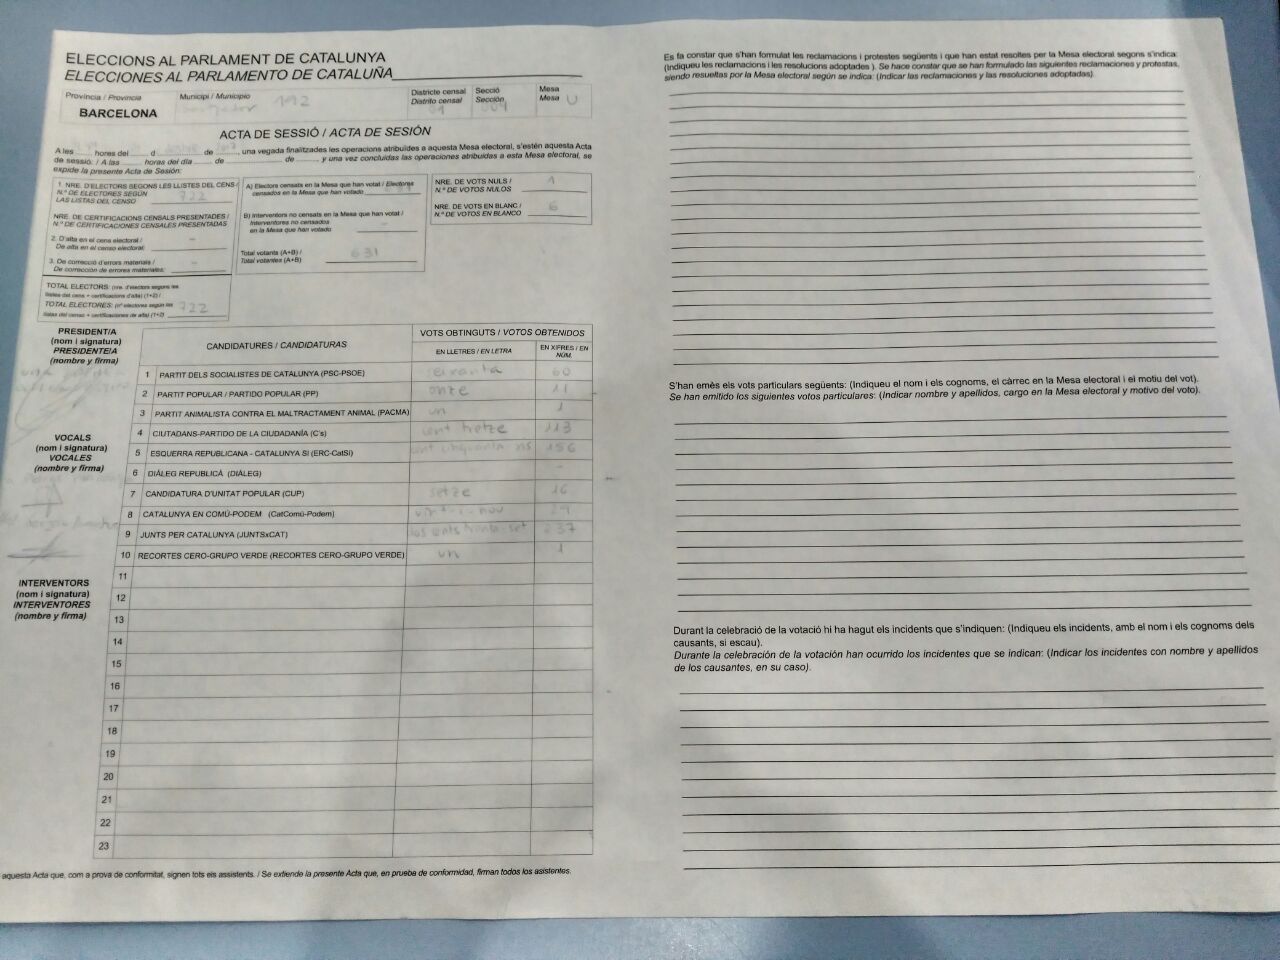 ELECCIONS AL PARLAMENT DE CATALUNYA
ELECCIONES AL PARLAMENTO DE CATALUÑA
Província / Provincia
BARCELONA
Municipi / Municipio
112
Districte censal
Distrito censal
01
Secció
Sección
004
Mesa
Mesa U
ACTA DE SESSIÓ / ACTA DE SESIÓN
A les hores del d de , una vegada finalitzades les operacions atribuïdes a aquesta Mesa electoral, s'estén aquesta Acta
de sessió. / A las horas del día de de , y una vez concluidas las operaciones atribuidas a esta Mesa electoral, se
expide la presente Acta de Sesión:
1. NRE. D'ELECTORS SEGONS LES LLISTES DEL CENS /
N.º DE ELECTORES SEGÚN
LAS LISTAS DEL CENSO 722
NRE. DE CERTIFICACIONS CENSALS PRESENTADES /
N.º DE CERTIFICACIONES CENSALES PRESENTADAS
2. D'alta en el cens electoral /
De alta en el censo electoral: -
3. De correcció d'errors materials /
De corrección de errores materiales: -
TOTAL ELECTORS: (nre. d'electors segons les
llistes del cens + certificacions d'alta) (1+2) /
TOTAL ELECTORES: (nº electores según las
listas del censo + certificaciones de alta) (1+2) 722
A) Electors censats en la Mesa que han votat / Electores
censados en la Mesa que han votado
B) Interventors no censats en la Mesa que han votat /
Interventores no censados
en la Mesa que han votado -
Total votants (A+B) /
Total votantes (A+B) 631
NRE. DE VOTS NULS /
N.º DE VOTOS NULOS 1
NRE. DE VOTS EN BLANC /
N.º DE VOTOS EN BLANCO 6
PRESIDENT/A
(nom i signatura)
PRESIDENTE/A
(nombre y firma)
VOCALS
(nom i signatura)
VOCALES
(nombre y firma)
INTERVENTORS
(nom i signatura)
INTERVENTORES
(nombre y firma)
CANDIDATURES / CANDIDATURAS
VOTS OBTINGUTS / VOTOS OBTENIDOS
EN LLETRES / EN LETRA
EN XIFRES / EN NÚM.
1 PARTIT DELS SOCIALISTES DE CATALUNYA (PSC-PSOE) seixanta 60
2 PARTIT POPULAR / PARTIDO POPULAR (PP) onze 11
3 PARTIT ANIMALISTA CONTRA EL MALTRACTAMENT ANIMAL (PACMA) un 1
4 CIUTADANS-PARTIDO DE LA CIUDADANÍA (C's) cent tretze 113
5 ESQUERRA REPUBLICANA - CATALUNYA SÍ (ERC-CatSí) cent cinquanta sis 156
6 DIÀLEG REPUBLICÀ (DIÀLEG) -
7 CANDIDATURA D'UNITAT POPULAR (CUP) setze 16
8 CATALUNYA EN COMÚ-PODEM (CatComú-Podem) vint-i-nou 29
9 JUNTS PER CATALUNYA (JUNTSxCAT) dos cents trenta-set 237
10 RECORTES CERO-GRUPO VERDE (RECORTES CERO-GRUPO VERDE) un 1
11
12
13
14
15
16
17
18
19
20
21
22
23
aquesta Acta que, com a prova de conformitat, signen tots els assistents. / Se extiende la presente Acta que, en prueba de conformidad, firman todos los asistentes.
Es fa constar que s'han formulat les reclamacions i protestes següents i que han estat resoltes per la Mesa electoral segons s'indica:
(Indiqueu les reclamacions i les resolucions adoptades ). Se hace constar que se han formulado las siguientes reclamaciones y protestas,
siendo resueltas por la Mesa electoral según se indica: (Indicar las reclamaciones y las resoluciones adoptadas).
S'han emès els vots particulars següents: (Indiqueu el nom i els cognoms, el càrrec en la Mesa electoral i el motiu del vot).
Se han emitido los siguientes votos particulares: (Indicar nombre y apellidos, cargo en la Mesa electoral y motivo del voto).
Durant la celebració de la votació hi ha hagut els incidents que s'indiquen: (Indiqueu els incidents, amb el nom i els cognoms dels
causants, si escau).
Durante la celebración de la votación han ocurrido los incidentes que se indican: (Indicar los incidentes con nombre y apellidos
de los causantes, en su caso).